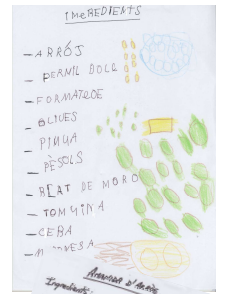 IMGREDIENTS
- ARRÓJ
- PERNIL DOLÇ
- FORMATGE
- OLIVES
- PINYA
- PÈSOLS
- BLAT DE MORO
- TOMYINA
- CEBA
AMANIDA D'ARRÒS
Ingredients: